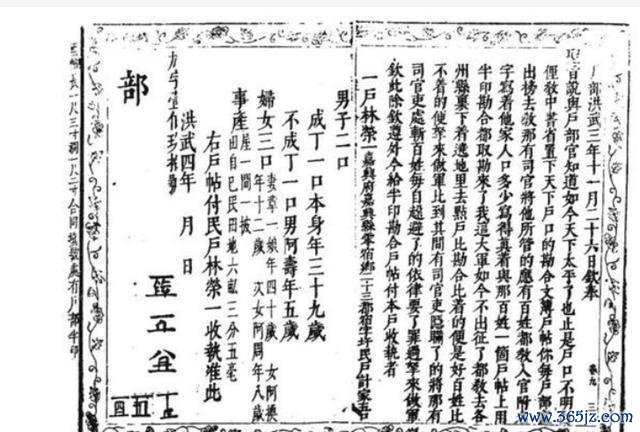 戶部洪武三年十一月二十六日欽奉
聖旨說與戶部官知道如今天下太平了也止是戶口不明
俚教中書省置下天下戶口的勘合文簿戶帖你每戶部
出榜去教那有司官將他所管的應有百姓都教入官附名
字寫着他家人口多少寫得真着與那百姓一個戶帖上用
半印勘合都取勘來了我這大軍如今不出征了都教去各
州縣裏下着遶地里去點戶比勘合比着的便是好百姓比
不着的便拏來做軍比到其間有司官吏隱瞞了的將那有
司官吏處斬百姓每自躲避了的依律要了罪過拏來做軍
欽此除欽遵外今給半印勘合戶帖付本戶收執者
一戶林榮一嘉興府嘉興縣零宿鄉二十三都宿字圩民戶計家五口
男子二口
成丁一口本身年三十九歲
不成丁一口男阿壽年五歲
婦女三口妻章一娘年四十歲 女阿換
年十二歲 次女阿周年八歲
事產屋一間一披
田自己民田地六畝三分五毫
右戶帖付民戶林榮一收執准此
洪武四年 月 日
部
卷九
www.365jz.com